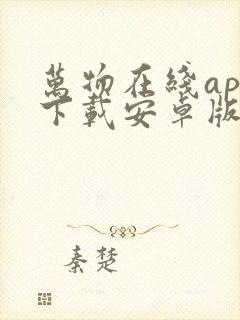 萬物在綫ap
下載安卓版
秦楚